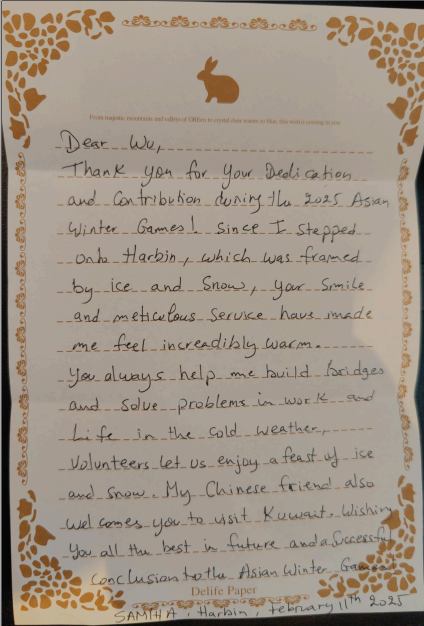 Dear Wu,
Thank you for your Dedication
and Contribution during the 2025 Asian
Winter Games! Since I stepped
onto Harbin, which was framed
by ice and Snow, your Smile
and meticulous service have made
me feel increadibly warm.
You always help me build bridges
and solve problems in work and
Life in the cold weather,
Volunteers let us enjoy a feast of ice
and snow. My Chinese friend also
welcomes you to visit Kuwait. Wishing
You all the best in future and a Successful
conclusion to the Asian Winter Games!
Delife Paper
Harbin, February 11th 2025